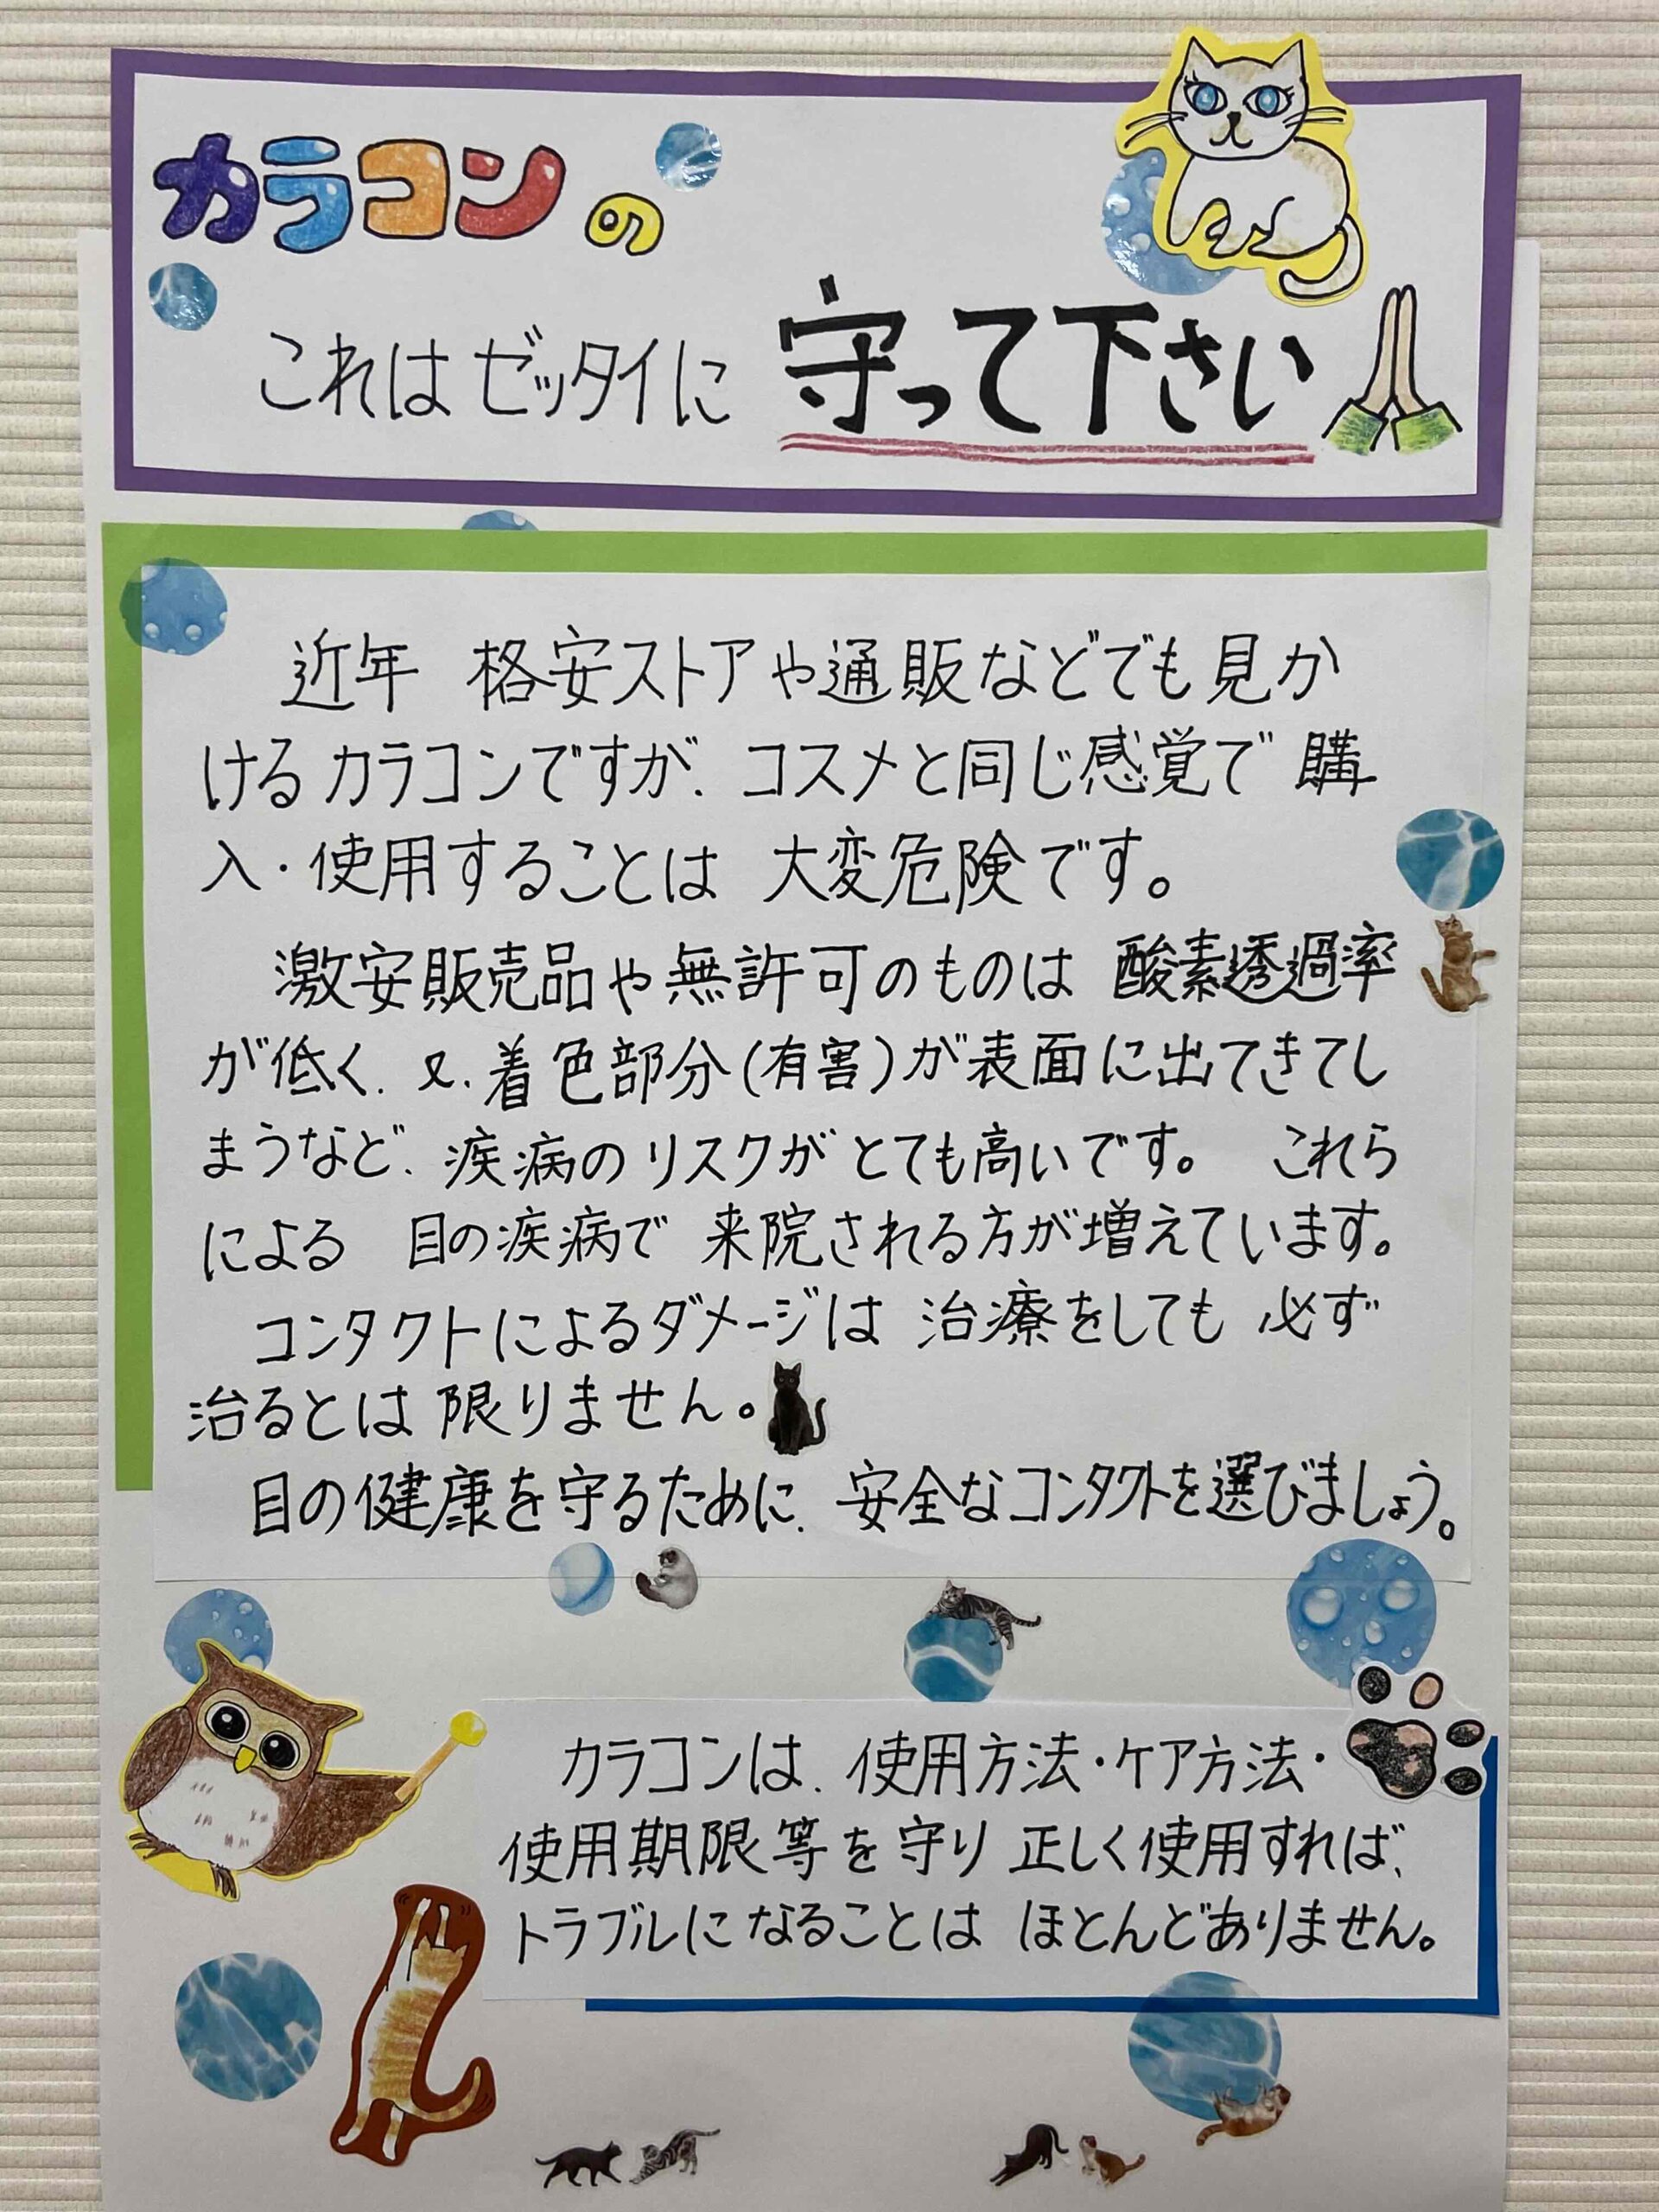 カラコンの
これはゼッタイに 守って下さい
近年 格安ストアや通販などでも見か
けるカラコンですが、コスメと同じ感覚で 購
入・使用することは 大変危険です。
激安販売品や無許可のものは 酸素透過率
が低く、又、着色部分(有害)が表面に出てきてし
まうなど、疾病のリスクがとても高いです。 これら
による 目の疾病で 来院される方が増えています。
コンタクトによるダメージは 治療をしても 必ず
治るとは 限りません。
目の健康を守るために、安全なコンタクトを選びましょう。
カラコンは、使用方法・ケア方法・
使用期限等を守り 正しく使用すれば、
トラブルになることは ほとんどありません。